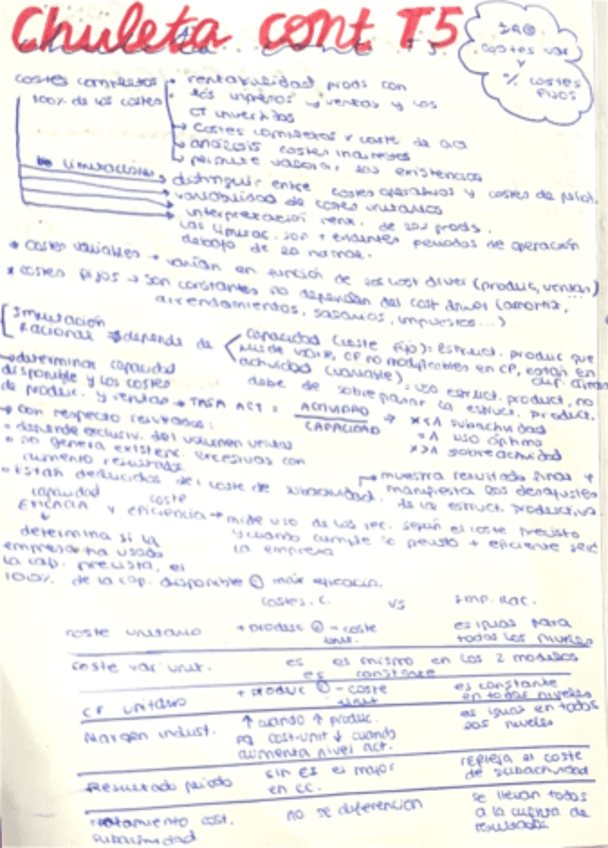 Chuleta cont T5
IRO
costes var
y
% costes
fijos
costes completos rentabilidad prods con
100% de los costes los ingresos ventas y los
CT invertidos
costes completos x coste de act
análisis costes indirectos
permite valorar las existencias
Limitaciones distinguir entre costes operativos y costes de
variabilidad de costes unitarios
interpretación rent. de los prods.
Las limitac. son + evidentes periodos de operación
debajo de lo normal.
* costes variables → varían en función de los cost driver (produc, ventas)
* costes fijos → son constantes no dependen del cost driver (amortiz,
arrendamientos, salarios, impuestos...)
Imputación
Racional depende de capacidad (coste fijo): estruct. produc que
CF no modificables en CP, están en
actividad (variable) = uso estruct. product, no
→ determinar capacidad
disponible y los costes debe de sobrepasar la estruct. product.
de produc. y ventas → TASA ACT = ACTIVIDAD / CAPACIDAD → x<1 subactividad
=1 uso óptimo
x>1 sobreactividad
→ con respecto resultados:
• depende exclusiv. del volumen ventas
• no genera existenc. excesivas con
aumento resultados
• Están deducidos del coste de subactividad.
muestra resultado final y
manifiesta los desajustes
de la estruct. productiva.
capacidad coste
Eficacia y eficiencia → mide uso de los rec. según el coste previsto
y cuando cumple lo previsto + eficiente será
la empresa
determina si la
empresa ha usado
la cap. prevista, el
100% de la cap. disponible máx eficacia.
costes. C. vs Imp. Rac.
coste unitario + produc - coste unit. es igual para todos los niveles
coste var unit. es el mismo en los 2 modelos
es constante
CF unitario + produc - coste unit es constante en todos niveles
Margen indust. ↑ cuando ↑ produc.
pq cost-unit ↓ cuando
aumenta nivel act. es igual en todos
los niveles
Resultado periodo sin EI es mayor
en CC. refleja el coste
de subactividad
Tratamiento cost.
subactividad no se diferencian se llevan todos
a la cuenta de
resultados